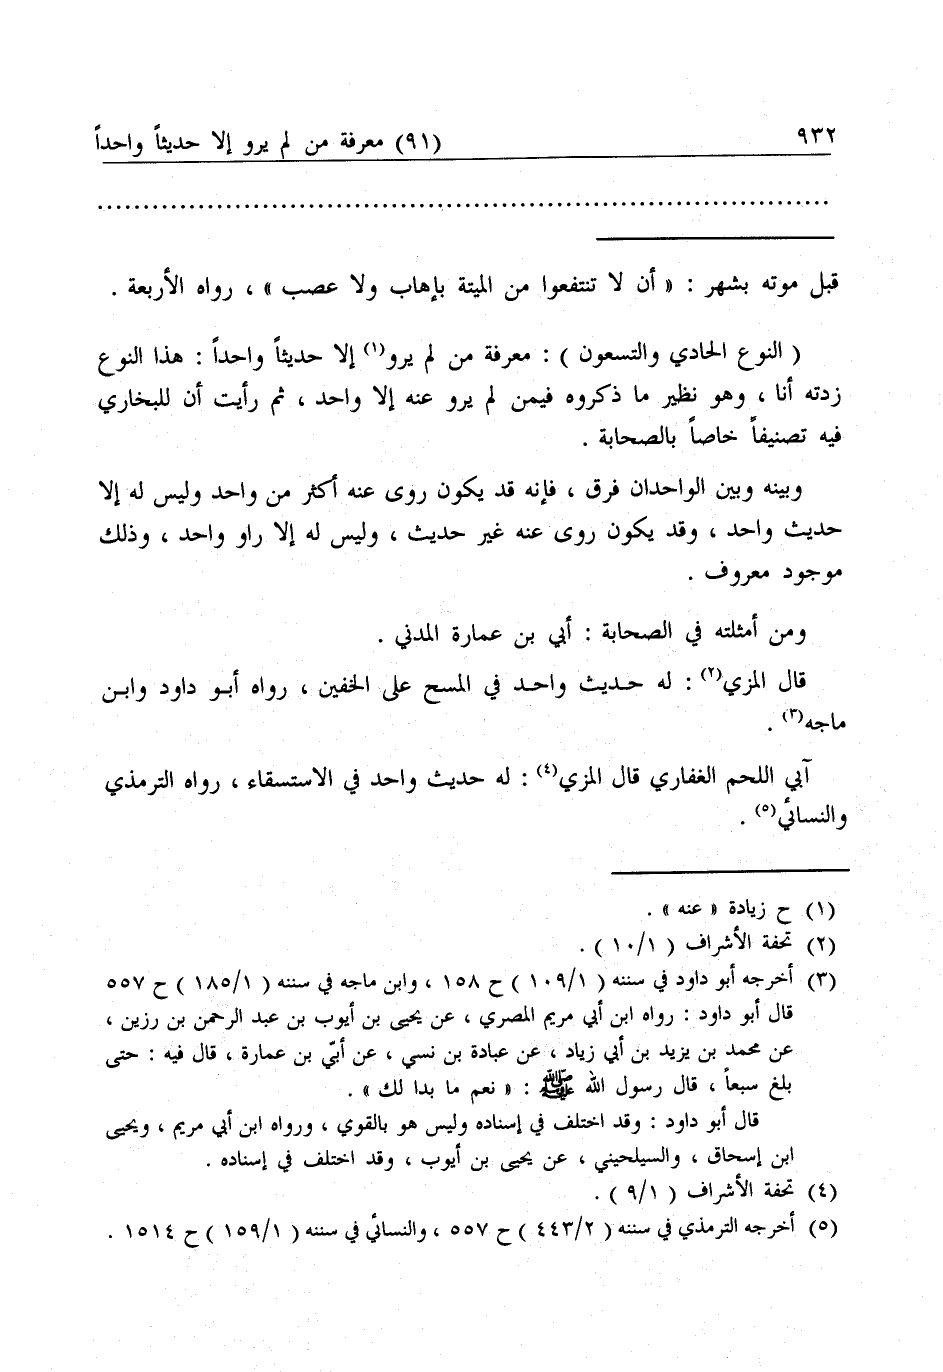 ٩٣٢ (٩١) معرفة من لم يرو إلا حديثاً واحداً
................................................................................
قبل موته بشهر : « أن لا تنتفعوا من الميتة بإهاب ولا عصب » ، رواه الأربعة .
( النوع الحادي والتسعون ) : معرفة من لم يرو(١) إلا حديثاً واحداً : هذا النوع
زدته أنا ، وهو نظير ما ذكروه فيمن لم يرو عنه إلا واحد ، ثم رأيت أن للبخاري
فيه تصنيفاً خاصاً بالصحابة .
وبينه وبين الواحدان فرق ، فإنه قد يكون روى عنه أكثر من واحد وليس له إلا
حديث واحد ، وقد يكون روى عنه غير حديث ، وليس له إلا راو واحد ، وذلك
موجود معروف .
ومن أمثلته في الصحابة : أبي بن عمارة المدني .
قال المزي(٢) : له حديث واحد في المسح على الخفين ، رواه أبو داود وابن
ماجه(٣) .
آبي اللحم الغفاري قال المزي(٤) : له حديث واحد في الاستسقاء ، رواه الترمذي
والنسائي(٥) .
(١) ح زيادة « عنه » .
(٢) تحفة الأشراف ( ١٠/١ ) .
(٣) أخرجه أبو داود في سننه ( ١٠٩/١ ) ح ١٥٨ ، وابن ماجه في سننه ( ١٨٥/١ ) ح ٥٥٧
قال أبو داود : رواه ابن أبي مريم المصري ، عن يحيى بن أيوب بن عبد الرحمن بن رزين ،
عن محمد بن يزيد بن أبي زياد ، عن عبادة بن نسي ، عن أبيّ بن عمارة ، قال فيه : حتى
بلغ سبعاً ، قال رسول الله ﷺ : « نعم ما بدا لك » .
قال أبو داود : وقد اختلف في إسناده وليس هو بالقوي ، ورواه ابن أبي مريم ، ويحيى
ابن إسحاق ، والسيلحيني ، عن يحيى بن أيوب ، وقد اختلف في إسناده .
(٤) تحفة الأشراف ( ٩/١ ) .
(٥) أخرجه الترمذي في سننه ( ٤٤٣/٢ ) ح ٥٥٧ ، والنسائي في سننه ( ١٥٩/١ ) ح ١٥١٤ .